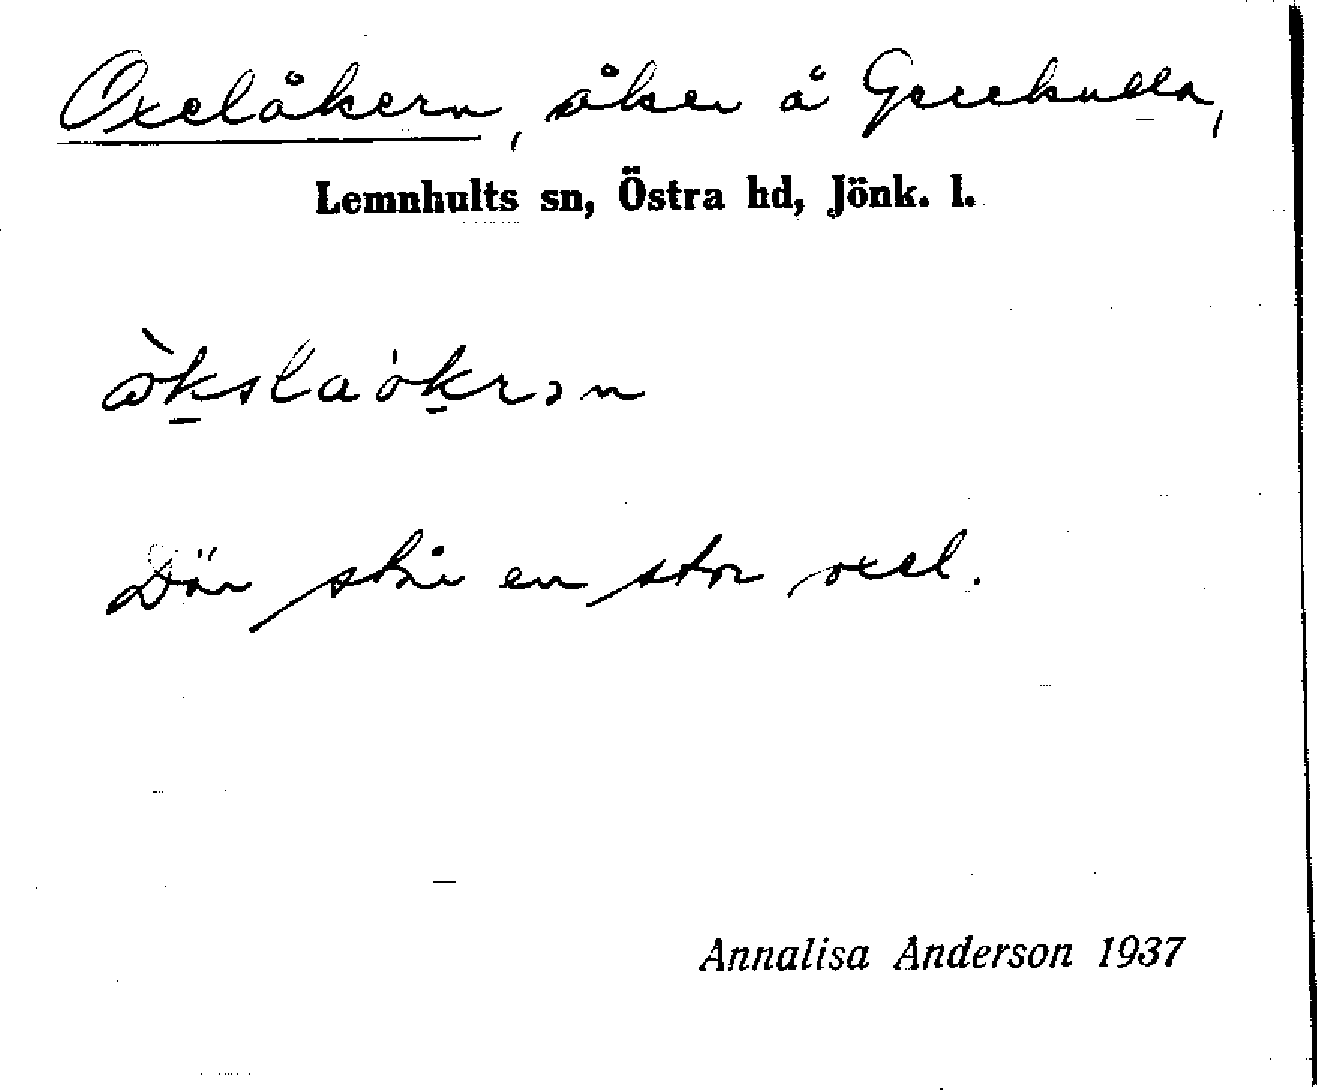 Oxelåkern, åker å Geeekulla,
Lemnhults sn, Östra hd, Jönk. l.
Där står en stor oxel.
Annalisa Anderson 1937